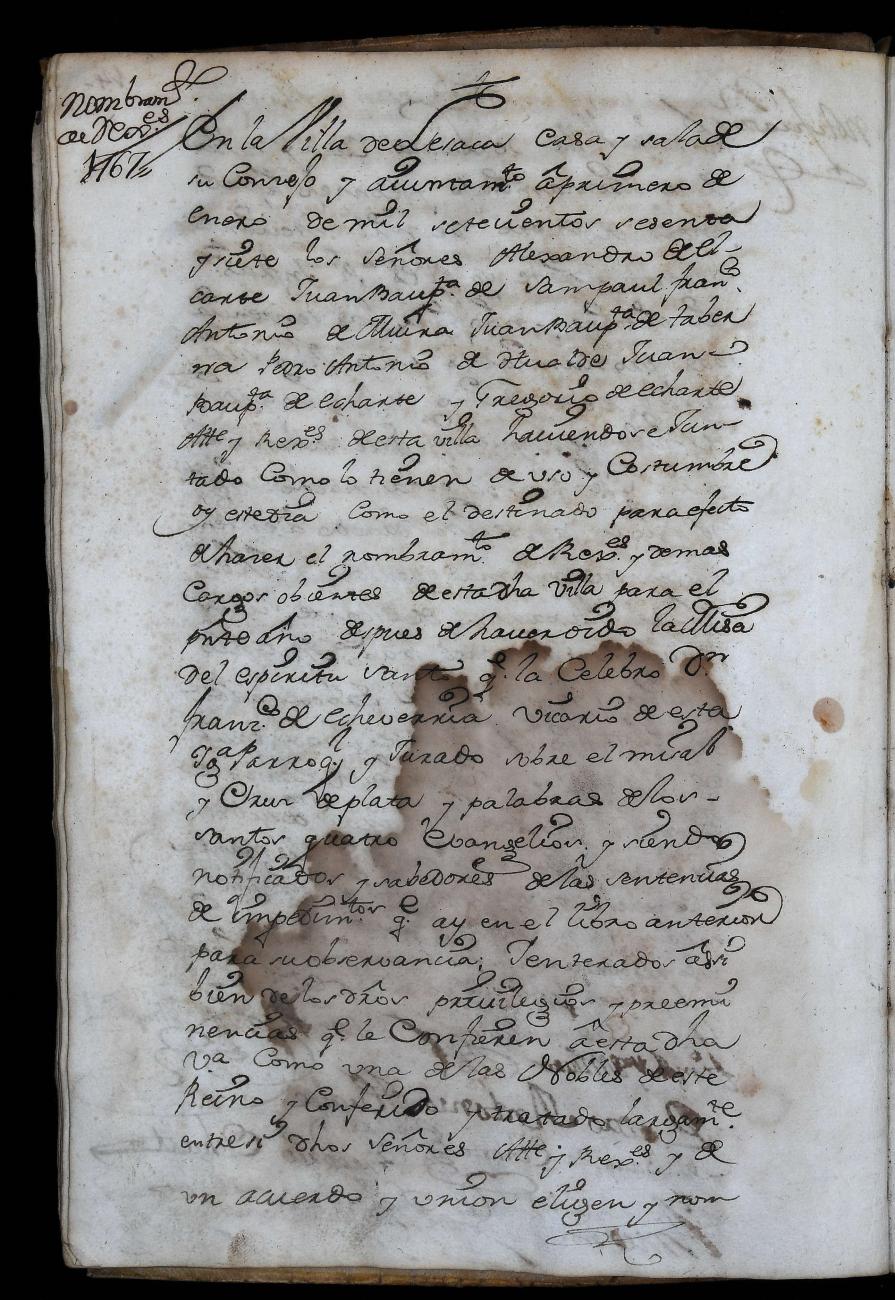 Nombram.to
de Rex.es
1767
En la Villa de Lesaca Casa y sala de
su Consejo y aiuntam.to â primero de
Enero de mil setecientos sesenta
y siete los señores Alexandro de El-
carte Juan Baup.ta de Sampaul fran.co
Antonio de Muira Juan Baup.ta de taber
na Pedro Antonio de Ytualde Juan
Baup.ta de Echarte y Gregorio de Echarte
Alte y Rex.es de esta villa haviendose Jun-
tado Como lo tienen de uso y Costumbre
oy este dia Como el destinado para efecto
de hacer el nombram.to de Rex.es y demas
Cargos obientes de esta dha villa para el
pnte año despues de haver oido la Misa
del espiritu santo q.e la Celebro Dn
franz.co de Echeverria Vicario de esta
Yg.a Parroq.l y Jurado sobre el misal
y Cruz de plata y palabras de los-
santos quatro Evangelios, y siendo
notificados y sabedores de las sentencias
de impedim.tos q.e ay en el libro anterior
para su observancia; Yenterados assi
bien de los dros privilegios y preemi
nencias q.e le Confieren â esta dha
V.a Como una de las Nobles de este
Reino y Conferido y tratado largam.te
entre si dhos señores Alte y Rex.es y de
un acuerdo y union eligen y nom